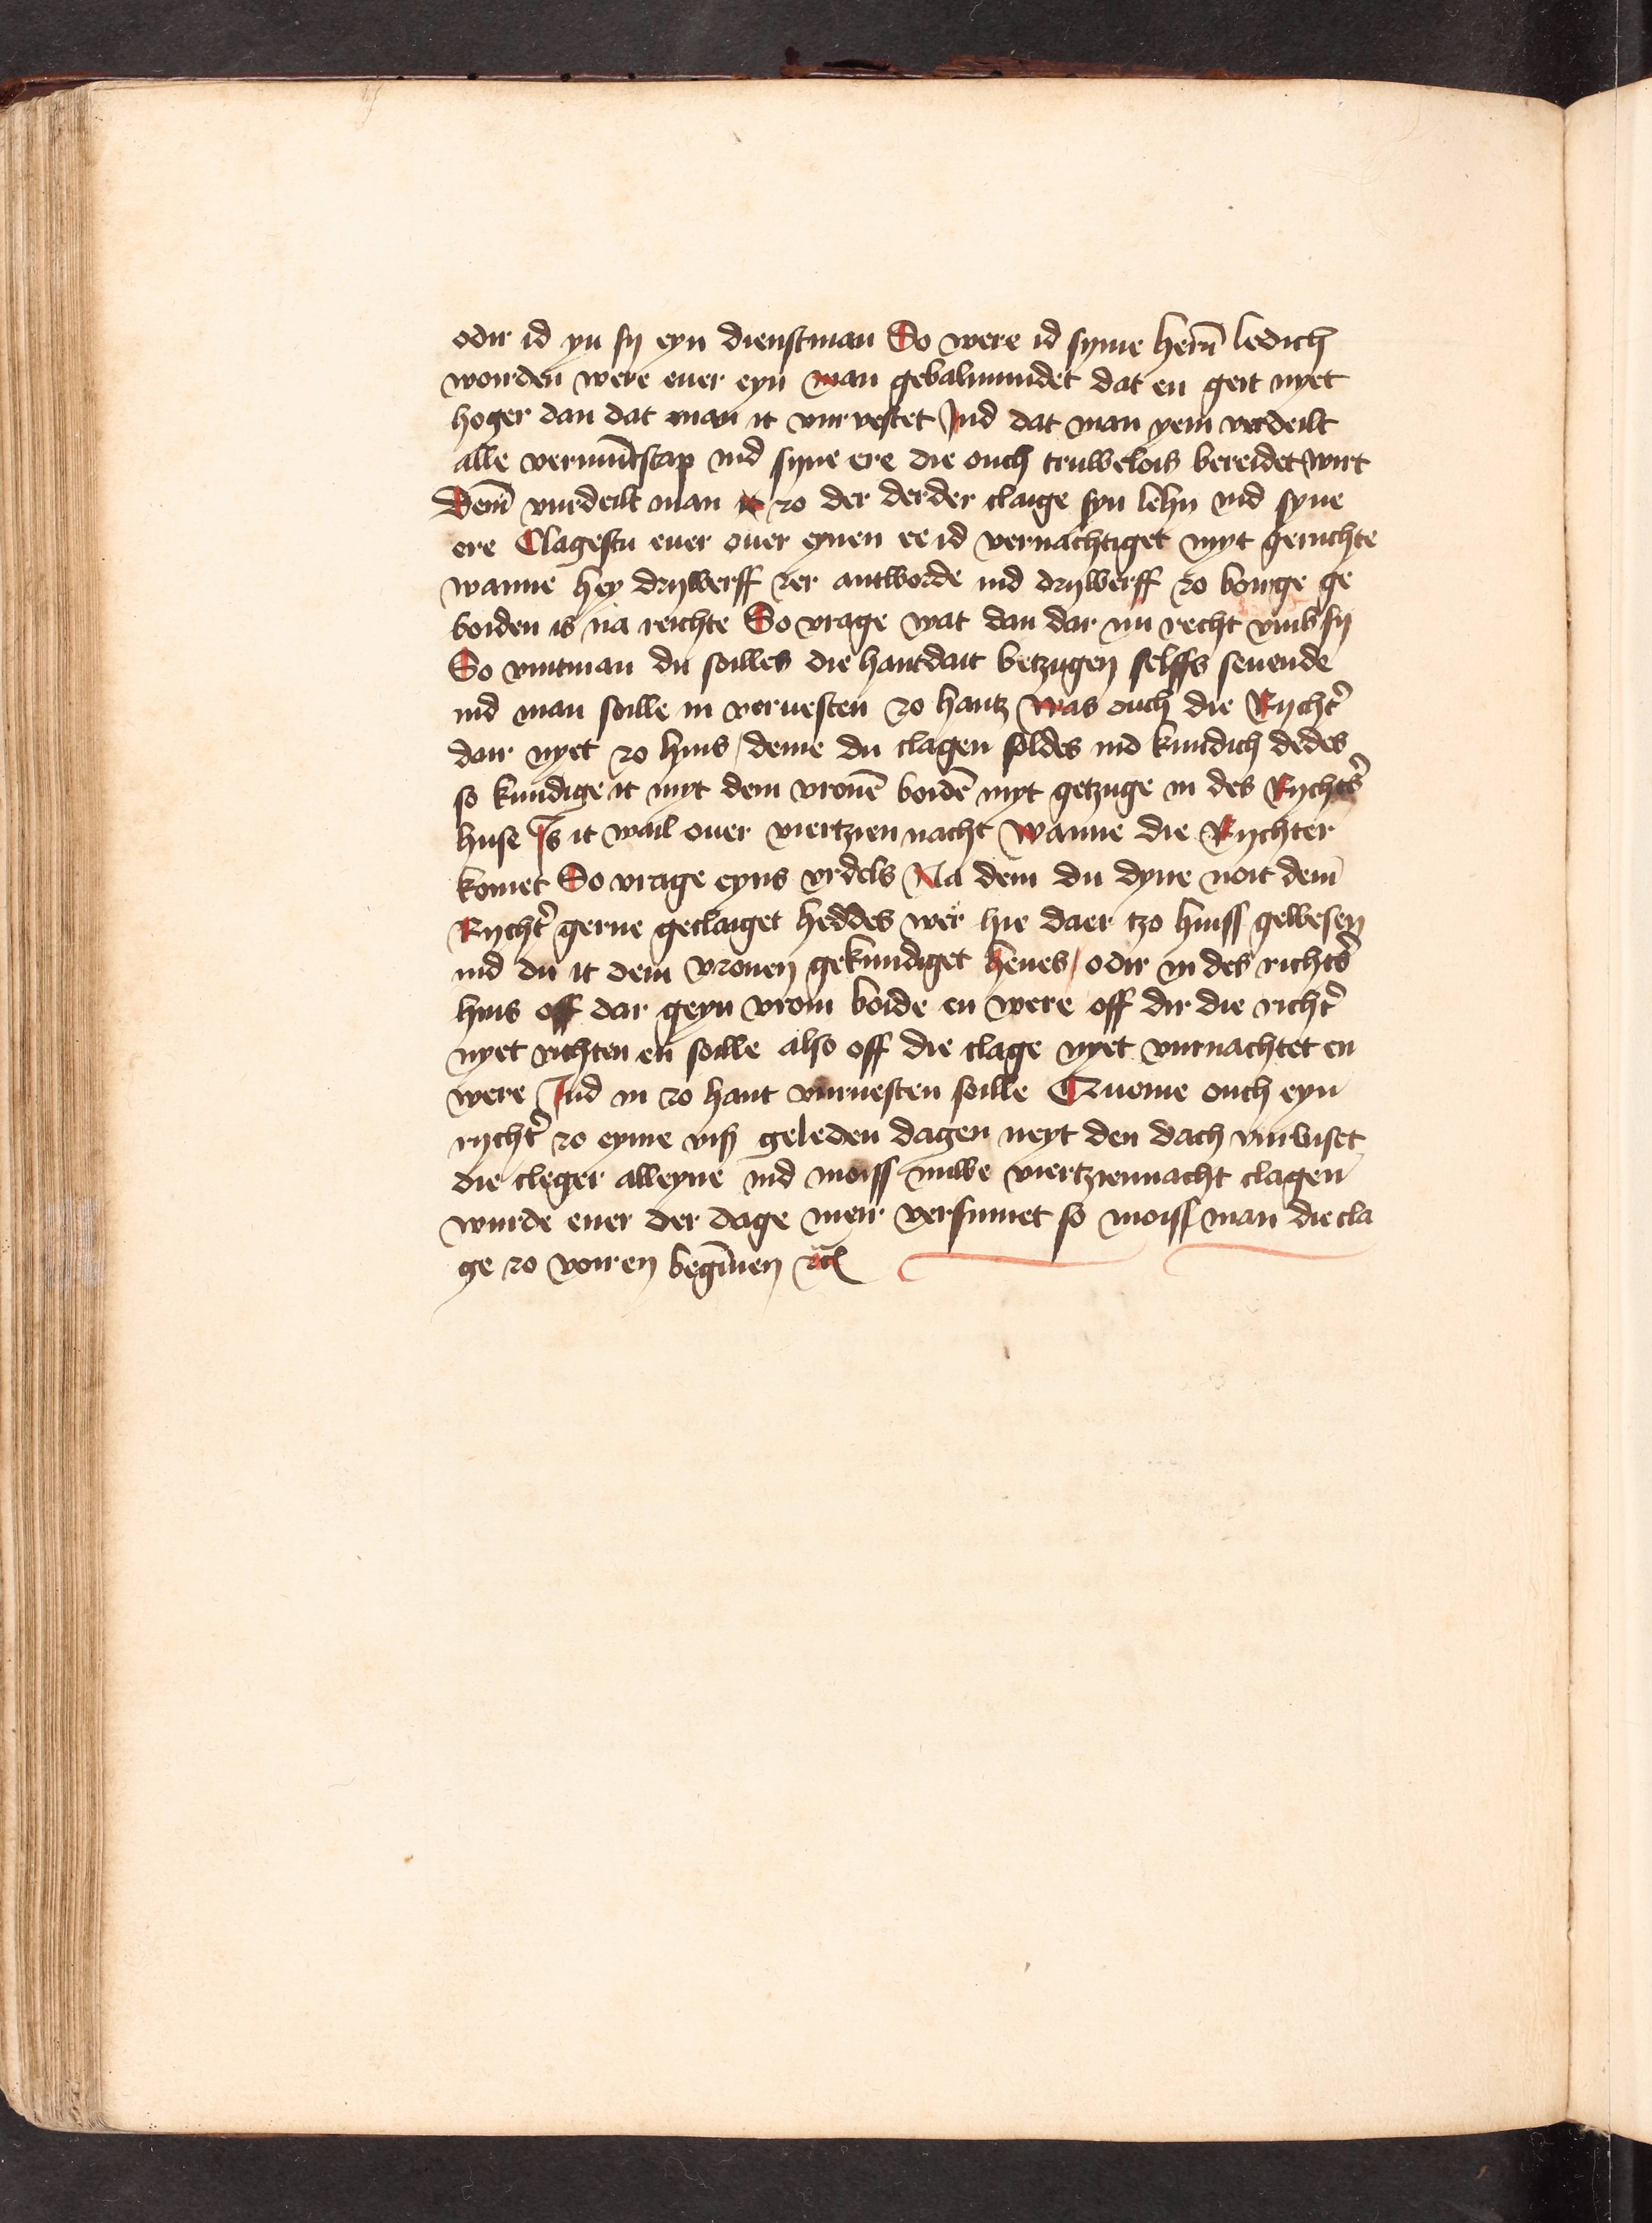 odir id yn sy eyn dienstman So were id syme hern̄ ledich
worden were euer eyn man gebalmundet dat en geit nyet
hoger dan dat man it vurvestet Jnd dat man yem verdeilt
alle vermūtscap ind syne ere die ouch truwelois bereidet wirt
Dem̄ vurdeilt man zo der derder claige syn lehn ind syne
ere Clagestu euer ouer eynen ee id vernachtiget myt geruchte
wanne hey drywerff zer antworde ind drywerff zo borge ge
boiden is na reichte So vrage wat dan dar nu recht vmb sy
So vintman du soilles die hantdait betzugen selffs seuende
ind man soille in veruesten zo hantz Was ouch die Rycht̉
dair nyet zo huis / deme du clagen soldes ind kundich dedes
so kundige it myt dem vronē boidē myt getzuge in des Rychtẻs
huse Js it wail ouer viertzien nacht Wanne die Rychter
komet So vrage eyns vrdels Na dem du dyne noit dem̄
Rycht̉ gerne geclaiget heddes wer hie daer tzo huiss gewesen
ind du it dem vronen gekundiget heues / odir in des richtẻs
huis off dar geyn vron boide en were off dir die richt̉
nyet richten en soille also off die clage nyet vurnachtet en
were Jnd in zo hant vuruesten soille Queme ouch eyn
rycht̉ zo eyme vyss geleden dagen neyt den dach vurluset
die cleger alleyne ind moiss nuwe viertziennacht clagen
wurde euer der dage meir versumet so moiss man die cla
ge zo voiren begīnen